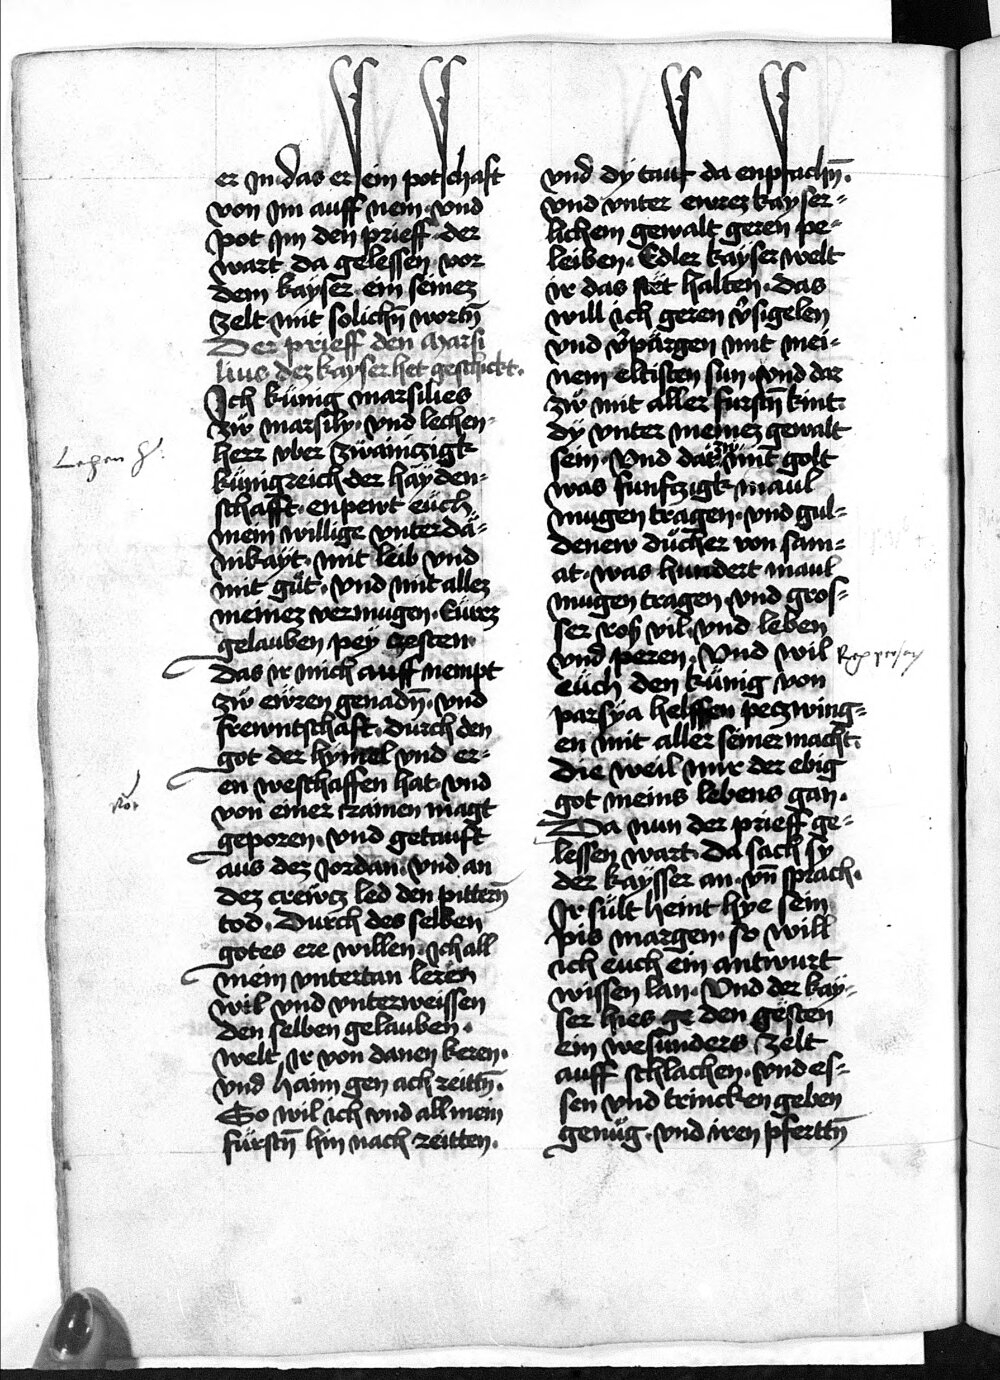 er Jm das er ein potschaft
von Jm auff nem · vnd
pot Jm den prieff · der
wart da gelessen vor
dem kayser ein seinez
zelt mit solichn̄ wortn̄
Der prieff den Marsi
lius dez kayser het geschickt.
Ich künig marsilies
zw̎ marsily · vnd lechen-
herr vber zwainczigk
künigreich der hayden-
schafft · enpewt eüch
mein willige vnterdä-
nikayt · mit leib vnd
mit güt · vnd mit allez
meinez vermugen · Eürez
gelauben pey gesten ·
das ir mich auff nempt
zw̎ ewren genadn̄ · vnd
frewntschaft · durch den
got der hymel vnd er-
en weschaffen hat · vnd
von einer rainen magt
geporen · vnd getauft
aus dez Jordan · vnd an
dez crewcz led den pittern̄
tod · Durch des selben
gotes ere willen · Ich all
mein vntertan leren
wil vnd vnterweissen
den selben gelauben ·
welt ir von danen keren ·
vnd haim gen ach reittn̄ ·
So wil ich vnd all mein
fürstn̄ hin nach reitten ·
vnd dy tauf da enpfachn̄ ·
vnd vnter ewrez kayser-
lichem gewalt geren pe-
leiben · Edler kayser welt
ir das stët halten · das
will ich geren v̎sigelen
vnd v̎pärgen mit mei-
nem eltisten sun · vnd dar
zw̎ mit aller furstn̄ kint ·
dÿ vnter meinez gewalt
sein · Vnd dar zw̎ mit golt
was funfczigk maul
mugen tragen · vnd gul-
denew dücher von sam-
at · was hundert maul
mugen tragen · vnd gros-
ser roß vil · vnd leben
vnd peren · Vnd wil
eüch den künig von
parsÿa helffen peczwing-
en mit aller seiner macht ·
Die weil mir der ebig
got meins lebens gan ·
Da nun der prieff ge-
lessen wart · Da sach sy
der kaysser an · vn̄ sprach ·
Ir sült heint hye sein
pis margen · so will
ich euch ein antwurt
wissen lan · Vnd der kay-
ser hies den gësten
ein wesunders zelt
auff schlachen · vnd es-
sen vnd trincken geben
genüg · vnd iren pferttn̄